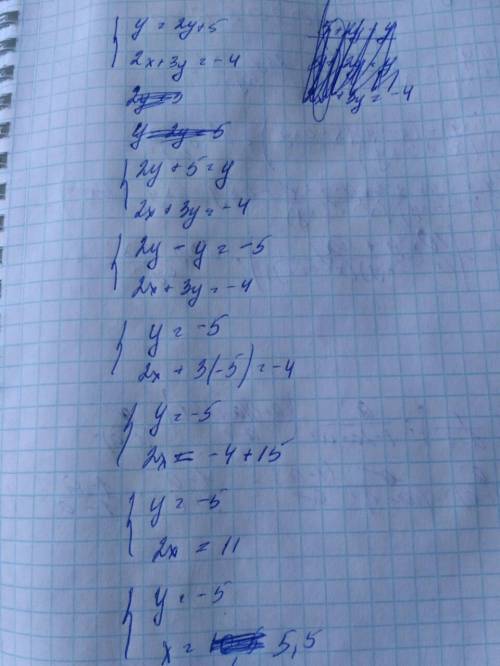 { y = 2y + 5
2x + 3y = -4
2y = 5
y = 2y = 5
{ 2y + 5 = y
2x + 3y = -4
{ 2y - y = -5
2x + 3y = -4
{ y = -5
2x + 3(-5) = -4
{ y = -5
2x = -4 + 15
{ y = -5
2x = 11
{ y = -5
x = 5,5
3y = -4